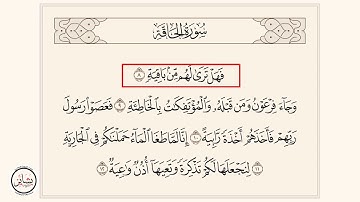 سُورَةُ الْحَاقَّةِ
فَهَلْ تَرَىٰ لَهُم مِّنۢ بَاقِيَةٍ ٨
وَجَآءَ فِرْعَوْنُ وَمَن قَبْلَهُۥ وَٱلْمُؤْتَفِكَٰتُ بِٱلْخَاطِئَةِ ٩ فَعَصَوْا۟ رَسُولَ
رَبِّهِمْ فَأَخَذَهُمْ أَخْذَةً رَّابِيَةً ١٠ إِنَّا لَمَّا طَغَا ٱلْمَآءُ حَمَلْنَٰكُمْ فِى ٱلْجَارِيَةِ
١١ لِنَجْعَلَهَا لَكُمْ تَذْكِرَةً وَتَعِيَهَآ أُذُنٌ وَٰعِيَةٌ ١٢